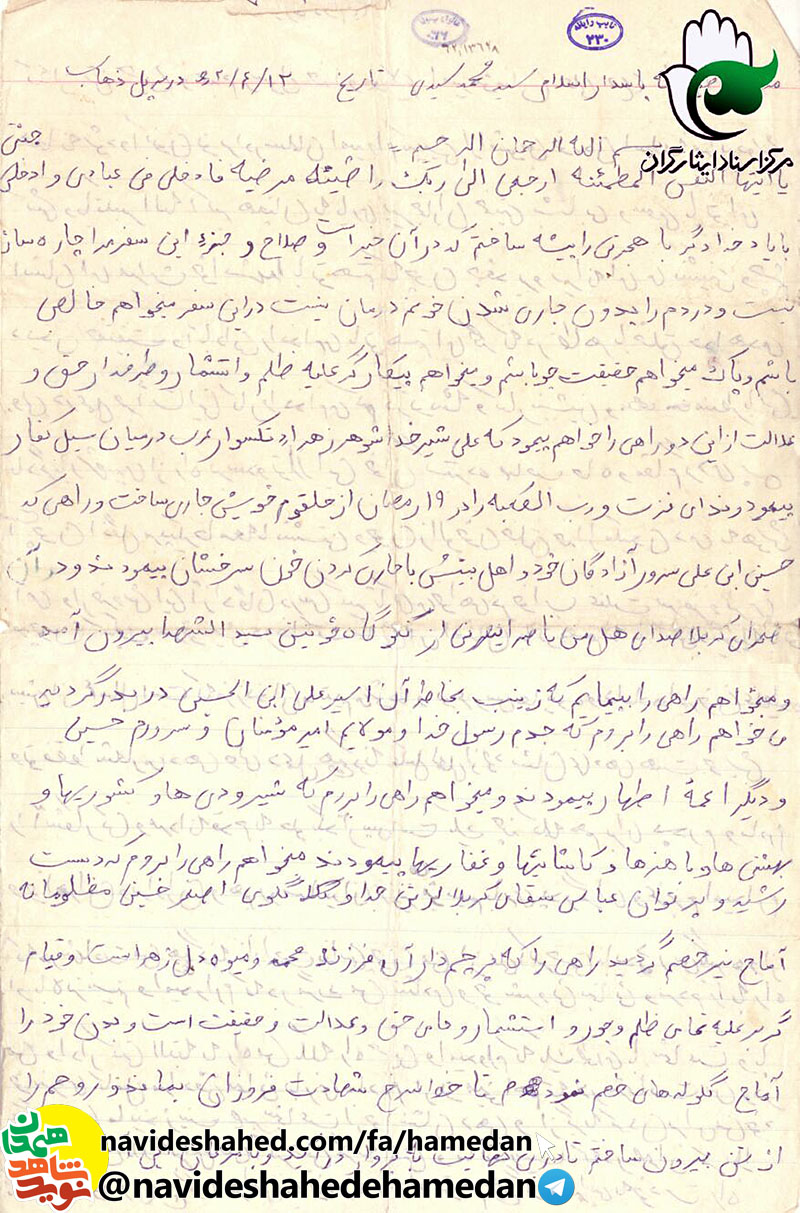 تاریخ ۶۲/۶/۱۲ در سرپل ذهاب
پاسدار اسلام سید محمد سیدی
۹۲/۱۳۶۲۸
۲۳۰
مرکز اسناد ایثارگران
بسم الله الرحمان الرحیم =
جنتی
یا ایتها النفس المطمئنه ارجعی الی ربک راضیته مرضیه فادخلی فی عبادی و ادخلی
با یاد خدا دگر با هجرتی را پیشه ساختم که در آن خیر است و صلاح و جزء این سفر مرا چاره ساز
نیست و دردم را بدون جاری شدن خونم درمان نیست در این سفر میخواهم خالص
باشم و پاک میخواهم حقیقت جو باشم و میخواهم پیکار گر علیه ظلم و استثمار و طرفدار حق و
عدالت از این دو راهی را خواهم پیمود که علی شیر خدا شوهر زهرا، یکسوار عرب در میان سیل کفار
پیمود و ندای فزت و رب الکعبه را در ۱۹ رمضان از حلقوم خویش جاری ساخت و راهی که
حسین ابن علی سرور آزادگان خود و اهل بیتش با جاری کردن خون سرخشان پیمودند و در آن
صحرای کربلا صدای هل من ناصر ینصرنی از گلو گاه خونین سید الشهدا بیرون آمد
و میخواهم راهی را بپیمایم که زینب بخاطر آن اسیر علی ابن الحسین در بدر گردید
می خواهم راهی را بروم که جدم رسول خدا و مولایم امیر مؤمنان و سرورم حسین
و دیگر ائمهٔ اطهار پیمودند و میخواهم راهی را بروم که شیرودی ها و کشوریها و
بهشتی ها و با هنرها و کاشانیها و غفاریها پیمودند میخواهم راهی را بروم که دست
رشید و پر توان عباس سقای کربلا از تن جدا و گلوی اصغر حسین مظلومانه
آماج تیر خصم گردید راهی را که پرچم دار آن فرزند محمد و میوه دل زهراست و قیام
گر بر علیه تمامی ظلم و جور و استثمار و حامی حق و عدالت و حقیقت است و بدن خود را
آماج گلوله های خصم نمودم تا چراغ شهادت فروزان بماند و روحم را
از تن بیرون ساختم تا
navideshahed.com/fa/hamedan
@navideshahedehamedan
نوید شاهد همدان